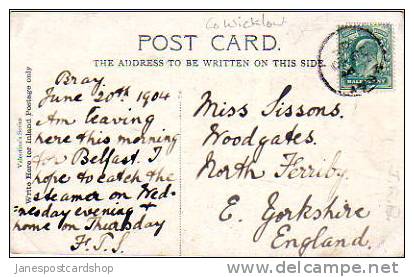 Co Wicklow
POST CARD.
THE ADDRESS TO BE WRITTEN ON THIS SIDE
Valentine's Series
Write Here for Inland Postage only
Bray
June 20th 1904
Am leaving
here this morning
for Belfast. I
hope to catch the
steamer on Wed-
nesday evening &
home on Thursday
F.T.S.
HALFPENNY
Miss Sissons.
Woodgates.
North Ferriby
E. Yorkshire
England.
janespostcardshop
delcampe.net